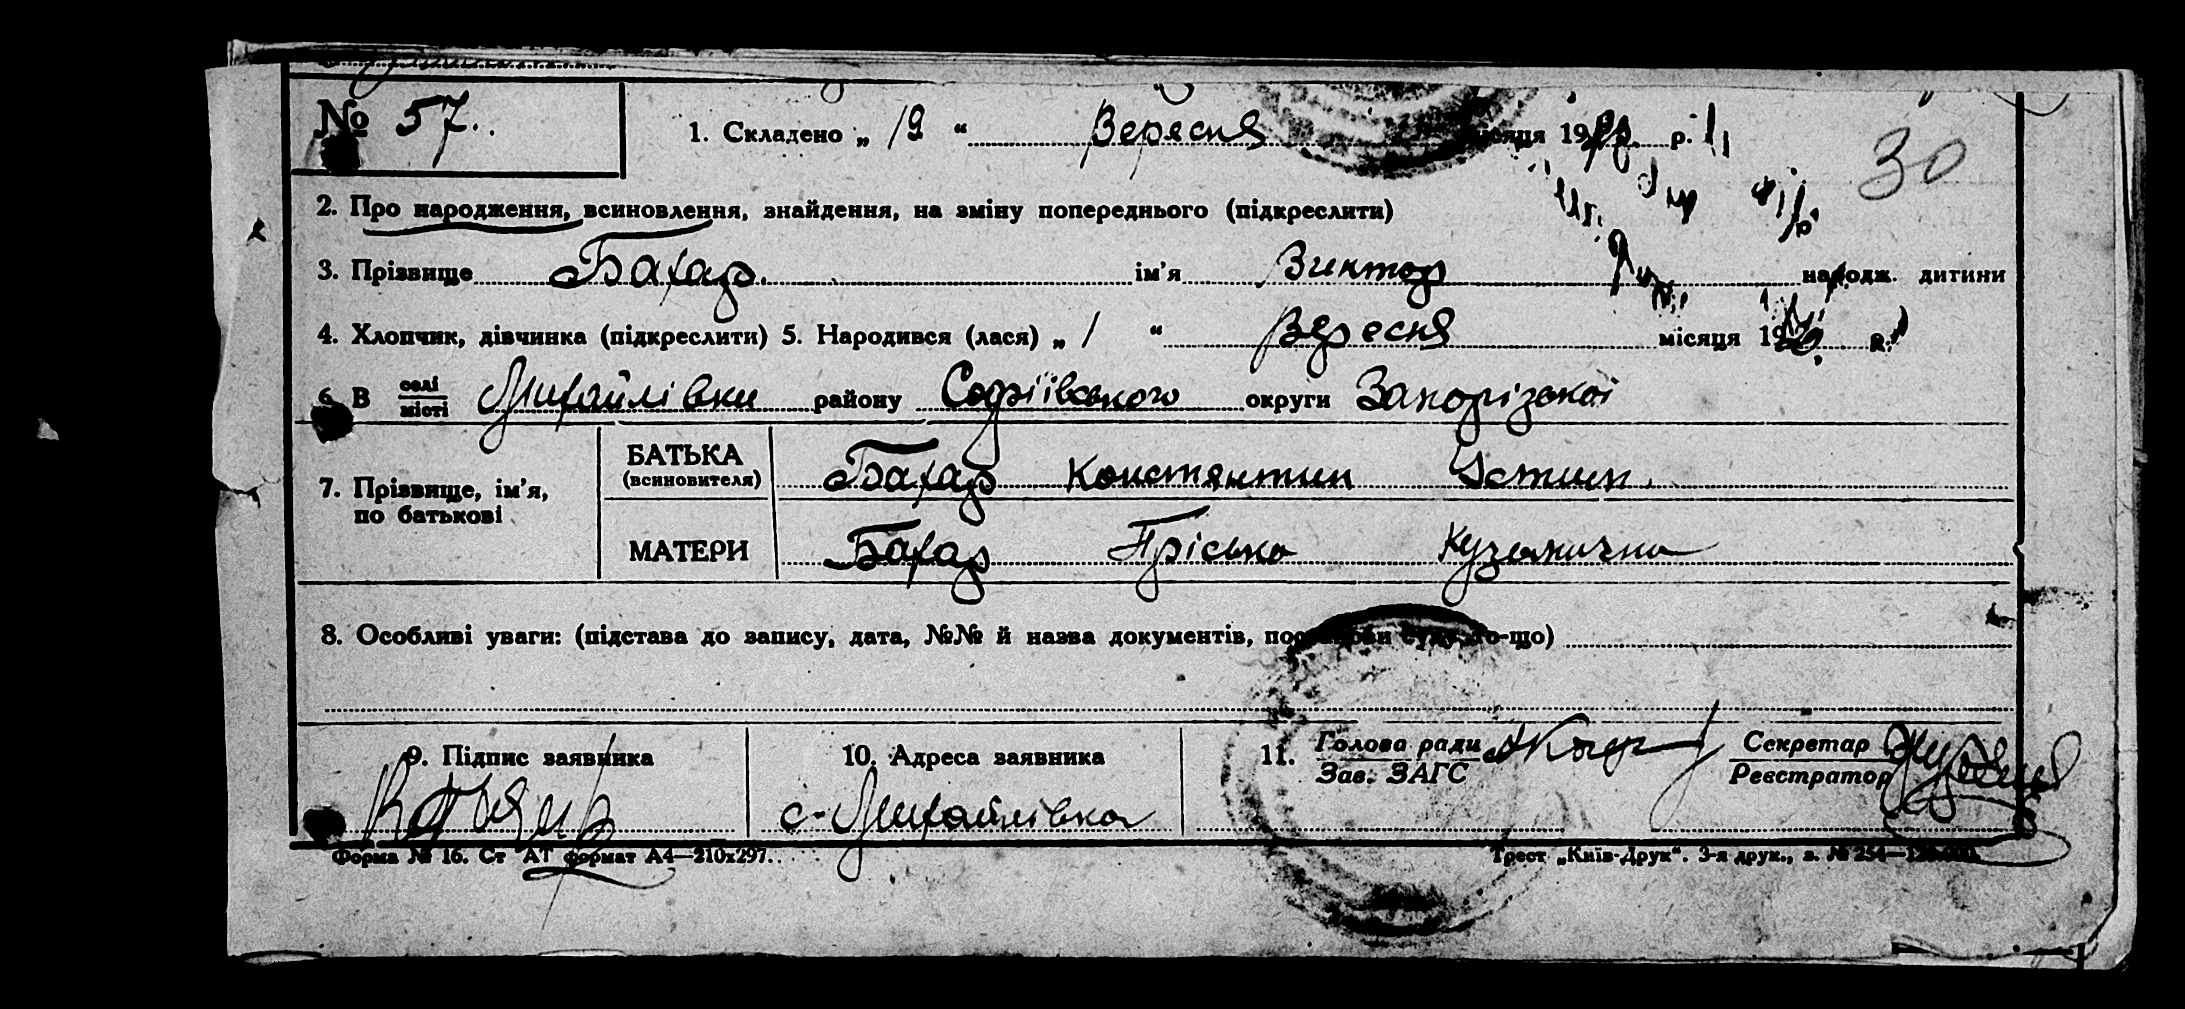 № 57.
30
1. Складено „ 19 “ Вересня місяця 19 р.
2. Про народження, всиновлення, знайдення, на зміну попереднього (підкреслити)
3. Прізвище Бахар. ім’я Виктор народж. дитини
4. Хлопчик, дівчинка (підкреслити) 5. Народився (лася) „ 1 “ Вересня місяця 19 р.
6. В селі/місті Михайлівки району Софіївського округи Запорізької
7. Прізвище, ім’я, по батькові
БАТЬКА (всиновителя) Бахар Константин Устин.
МАТЕРИ Бахар Пріська Кузьмична
8. Особливі уваги: (підстава до запису, дата, №№ й назва документів, постанови суду то-що)
9. Підпис заявника
10. Адреса заявника
с. Михайлівка
11. Голова ради
Зав. ЗАГС
Секретар
Реєстратор
Форма № 16. Ст АТ формат А4—210х297.
Трест „Київ-Друк“. 3-я друк., з. № 254—